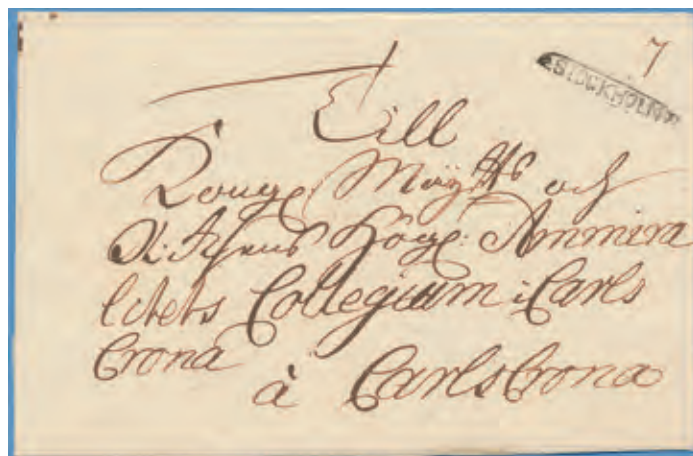 7
STOCKHOLM
Till
Kongl Maÿtts och
Rikhens Höge: Ammira
litets Collegium i Carls
Crona
à CarlsCrona